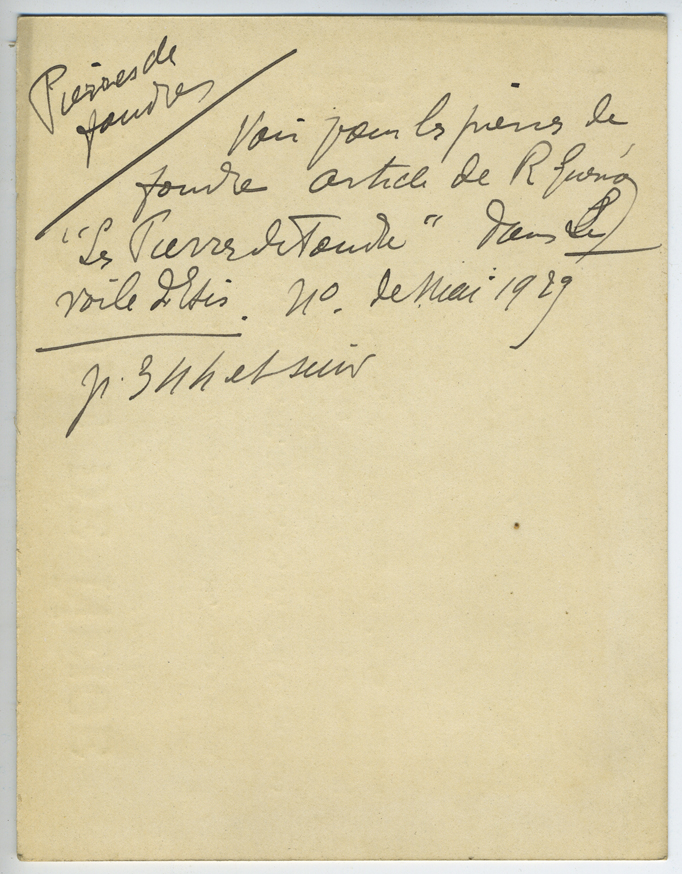 Pierres de
foudres
Voir pour les pierres de
foudre article de R Guénon
"Les Pierres de Foudre" dans Le
voile d'Isis. No. de Mai 1929
p. 344 et suiv